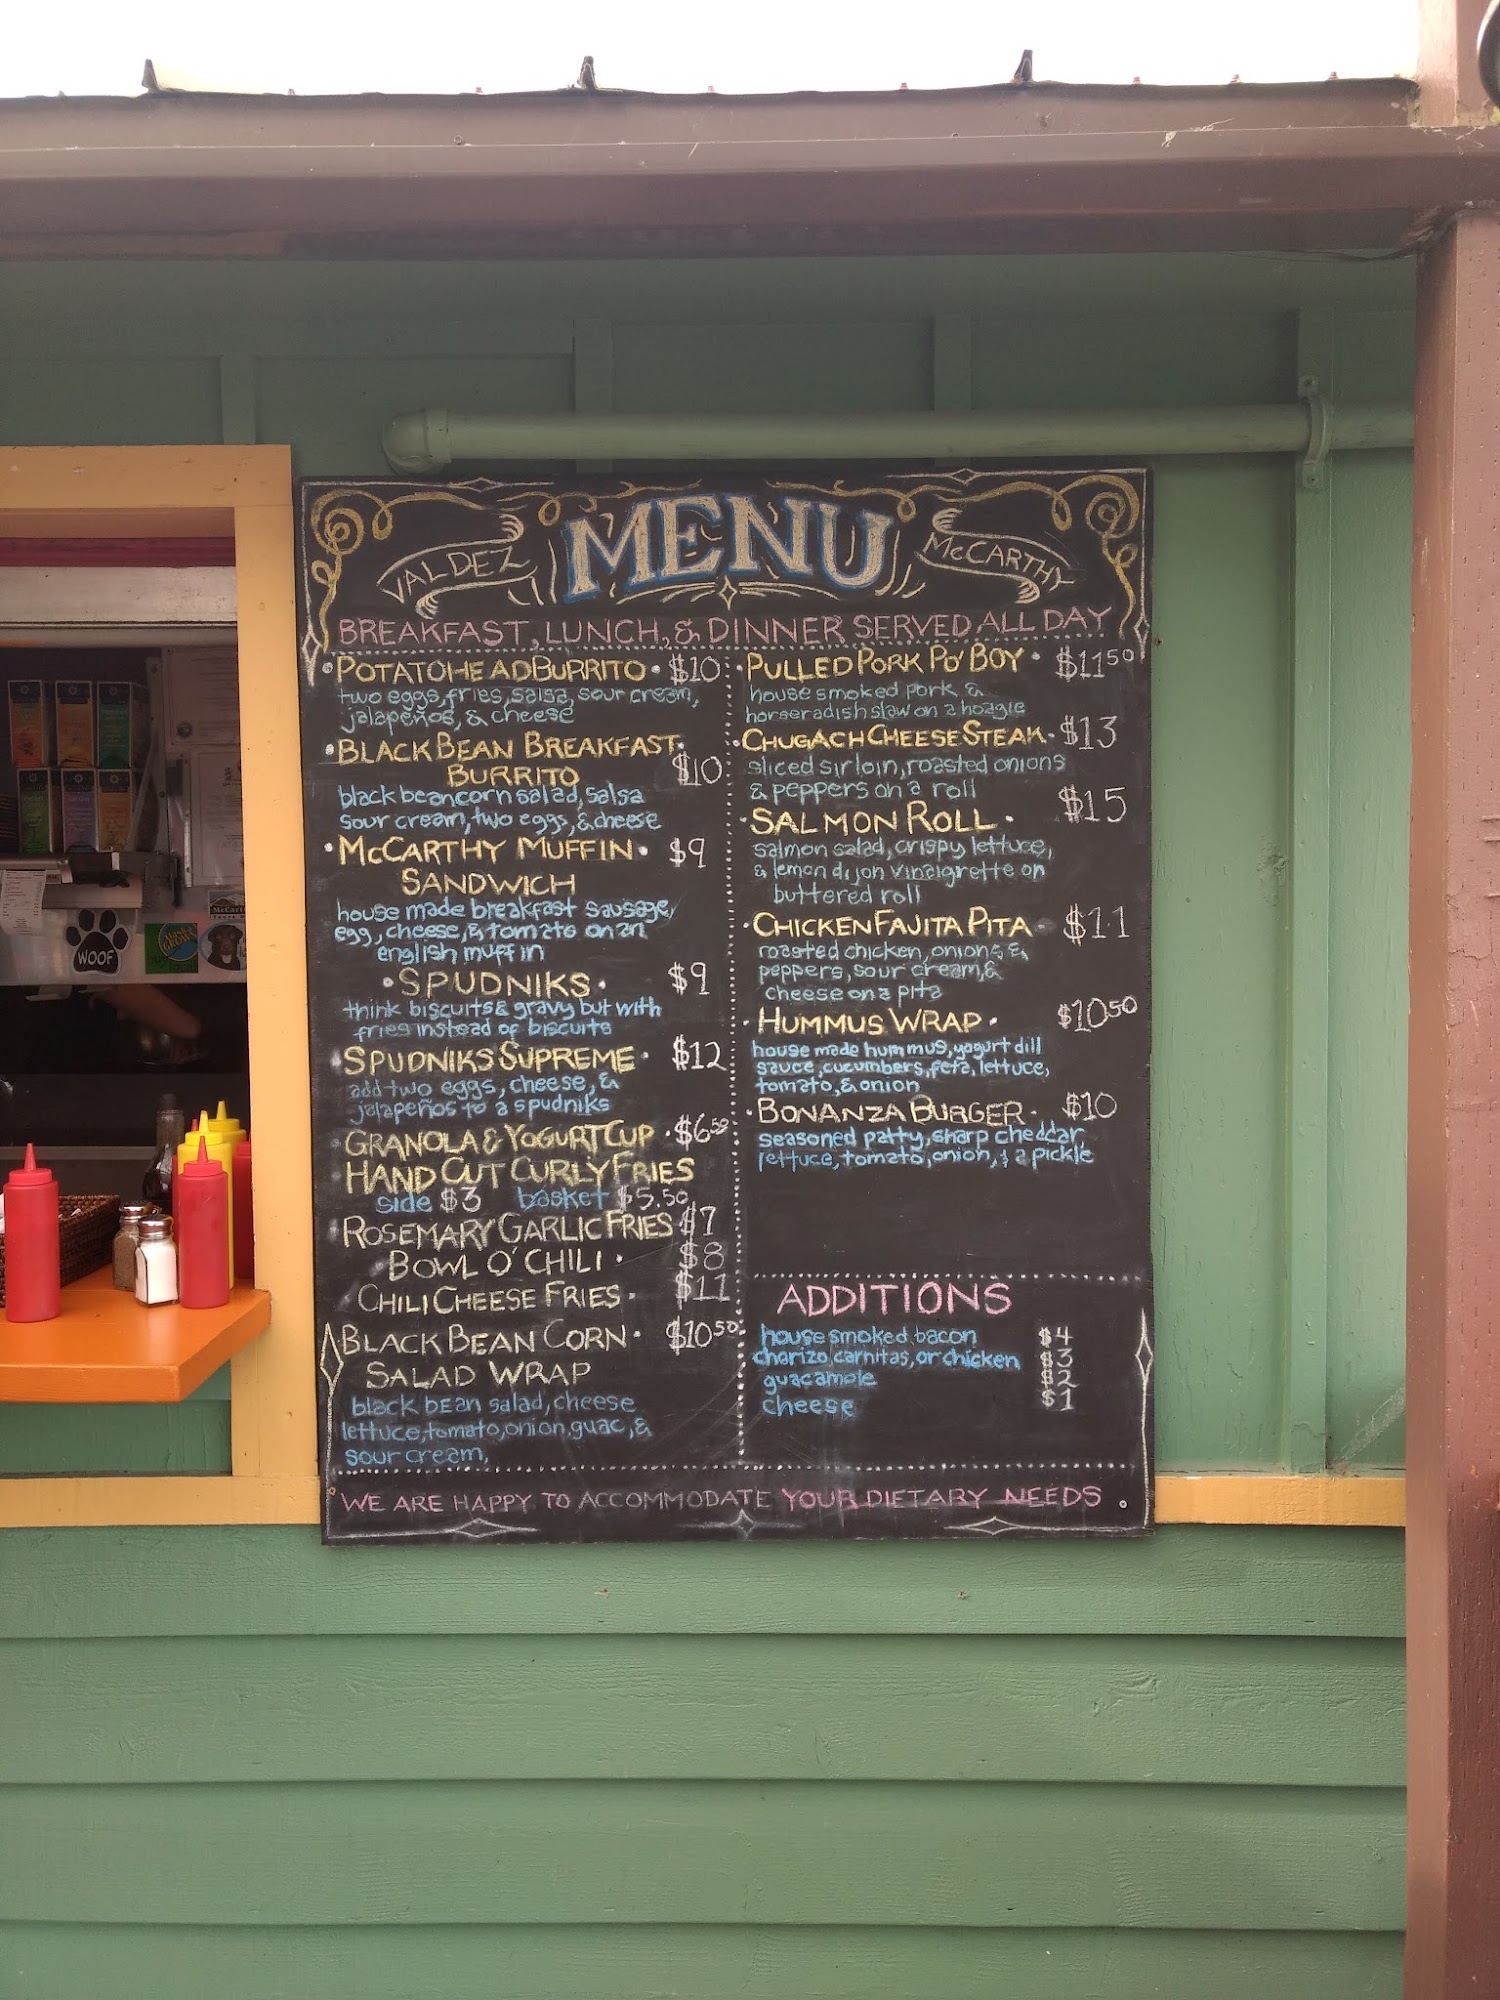 VALDEZ MENU McCARTHY
BREAKFAST, LUNCH, & DINNER SERVED ALL DAY
• POTATOHEAD BURRITO • $10
two eggs, fries, salsa, sour cream,
jalapeños, & cheese
• BLACK BEAN BREAKFAST •
BURRITO $10
black bean corn salad, salsa
sour cream, two eggs, & cheese
• McCARTHY MUFFIN • $9
SANDWICH
house made breakfast sausage,
egg, cheese, & tomato on an
english muffin
• SPUDNIKS • $9
think biscuits & gravy but with
fries instead of biscuits
SPUDNIKS SUPREME • $12
add two eggs, cheese, &
jalapeños to a spudniks
GRANOLA & YOGURT CUP • $6.50
HAND CUT CURLY FRIES
side $3 basket $5.50
ROSEMARY GARLIC FRIES $7
• BOWL O' CHILI • $8
CHILI CHEESE FRIES • $11
BLACK BEAN CORN • $10.50
SALAD WRAP
black bean salad, cheese
lettuce, tomato, onion, guac, &
sour cream,
• PULLED PORK PO' BOY • $11.50
house smoked pork &
horseradish slaw on a hoagie
• CHUGACH CHEESE STEAK • $13
sliced sirloin, roasted onions
& peppers on a roll
• SALMON ROLL • $15
salmon salad, crispy lettuce,
& lemon dijon vinaigrette on
buttered roll
• CHICKEN FAJITA PITA • $11
roasted chicken, onions &
peppers, sour cream, &
cheese on a pita
• HUMMUS WRAP • $10.50
house made hummus, yogurt dill
sauce, cucumbers, feta, lettuce,
tomato, & onion
• BONANZA BURGER • $10
seasoned patty, sharp cheddar,
lettuce, tomato, onion, & a pickle
ADDITIONS
house smoked bacon $4
chorizo, carnitas, or chicken $3
guacamole $2
cheese $1
WE ARE HAPPY TO ACCOMMODATE YOUR DIETARY NEEDS
WOOF